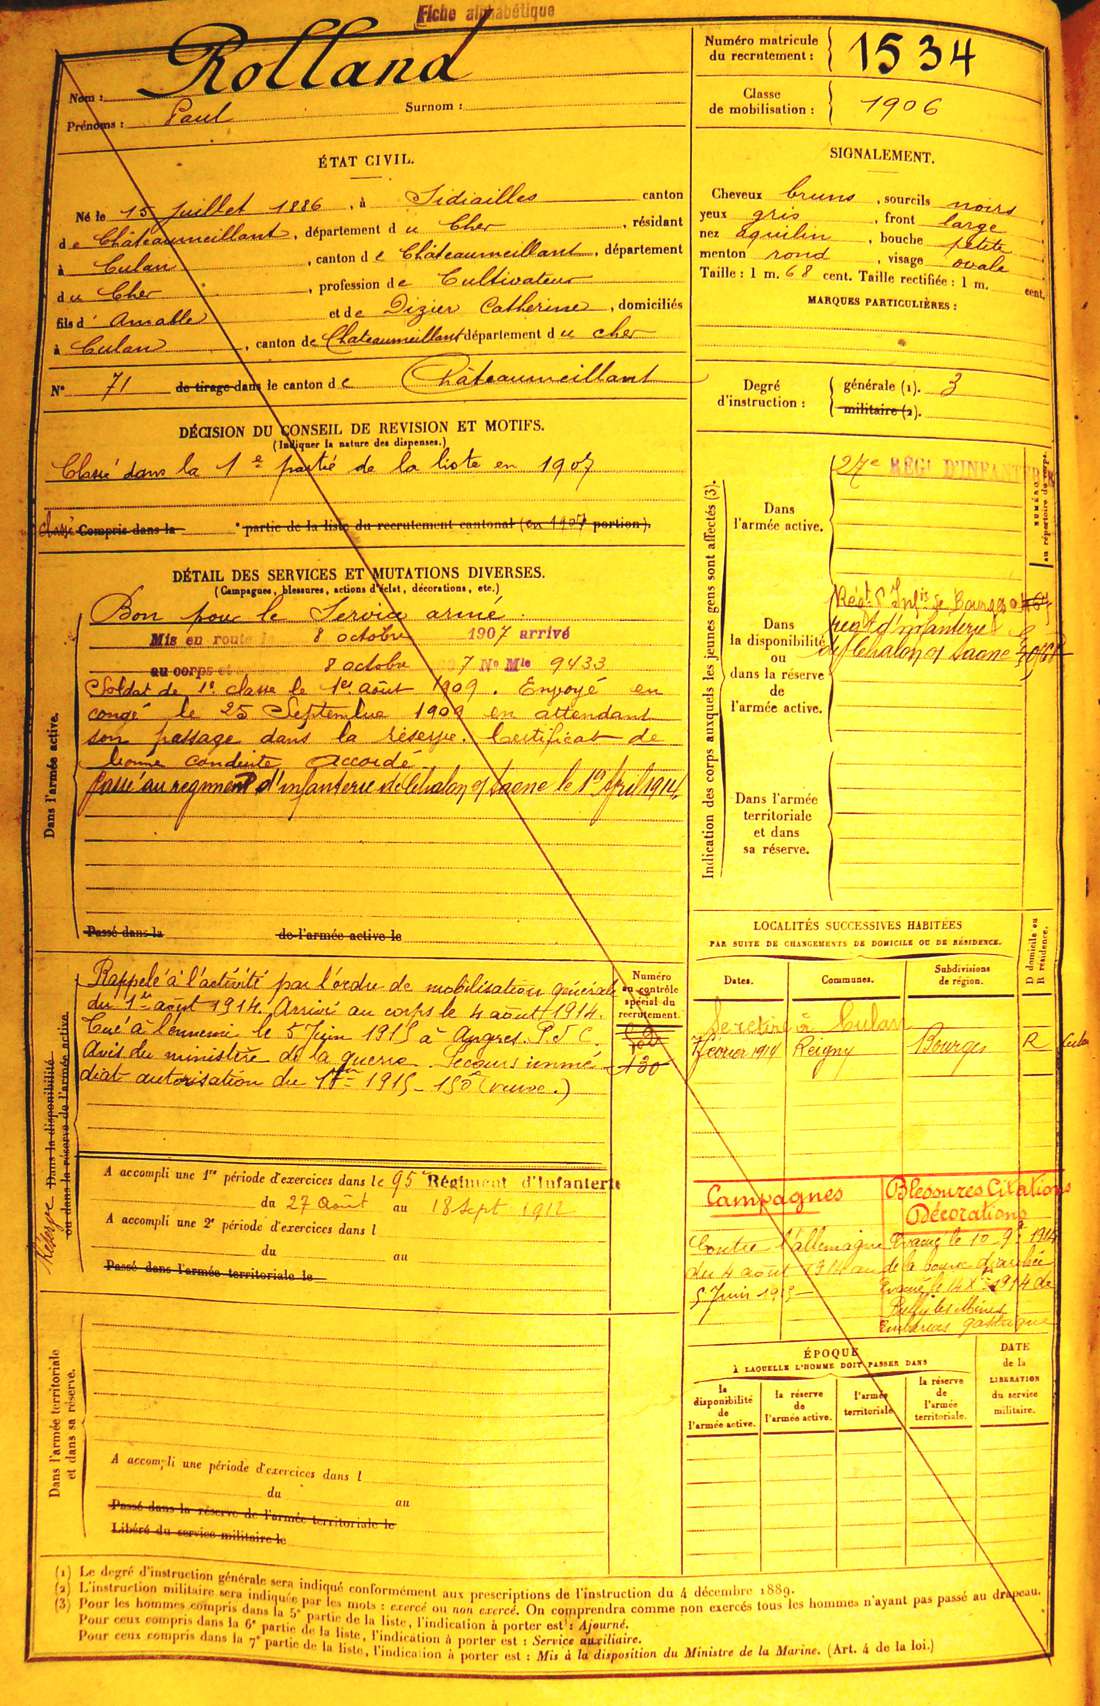 Fiche alphabétique
Nom : Rolland
Prénoms : Paul Surnom :
Numéro matricule du recrutement : 1534
Classe de mobilisation : 1906
ÉTAT CIVIL.
Né le 15 juillet 1886, à Sidiailles canton
de Châteaumeillant, département du Cher, résidant
à Culan, canton de Châteaumeillant, département
du Cher, profession de Cultivateur
fils d' Amable et de Dizier Catherine, domiciliés
à Culan, canton de Chateaumeillant département du cher
N° 71 de tirage dans le canton de Châteaumeillant
SIGNALEMENT.
Cheveux bruns, sourcils noirs,
yeux gris, front large,
nez aquilin, bouche petite,
menton rond, visage ovale
Taille : 1 m. 68 cent. Taille rectifiée : 1 m. cent.
MARQUES PARTICULIÈRES :
Degré d'instruction :
générale (1). 3
militaire (2).
DÉCISION DU CONSEIL DE REVISION ET MOTIFS.
(Indiquer la nature des dispenses.)
Classé dans la 1e partie de la liste en 1907
classé Compris dans la partie de la liste du recrutement cantonal (en 1907 portion).
DÉTAIL DES SERVICES ET MUTATIONS DIVERSES.
(Campagnes, blessures, actions d'éclat, décorations, etc.)
Dans l'armée active.
Bon pour le Service armé.
Mis en route le 8 octobre 1907 arrivé
au corps et 8 octobre 7 No Mle 9433
Soldat de 1e classe le 1er août 1909. Envoyé en
congé le 25 Septembre 1909 en attendant
son passage dans la réserve. Certificat de
bonne conduite accordé
Passé au régiment d'infanterie de Chalon s/ Saone le 1er Avril 1914
Passé dans la de l'armée active le
Indication des corps auxquels les jeunes gens sont affectés (3).
NUMÉRO au répertoire du corps.
Dans l'armée active.
27e RÉGt D'INFANTERIE
Dans la disponibilité ou dans la réserve de l'armée active.
Régt d'Infie de Bourges
régt d'infanterie
de Chalon s/ Saone
Dans l'armée territoriale et dans sa réserve.
LOCALITÉS SUCCESSIVES HABITÉES
PAR SUITE DE CHANGEMENTS DE DOMICILE OU DE RÉSIDENCE.
Dates. Communes. Subdivisions de région. D domicile ou R résidence.
Se retire à Culan
7 février 1914 Reigny Bourges R
Réserve Dans la disponibilité ou dans la réserve de l'armée active.
Numéro au contrôle spécial du recrutement.
Rappelé à l'activité par l'ordre de mobilisation générale
du 1er août 1914. Arrivé au corps le 4 août 1914.
Tué à l'ennemi le 5 Juin 1915 à Angres. P. d. C.
Avis du ministère de la guerre. Secours immé
diat autorisation du 1915 150f (veuve.)
A accompli une 1re période d'exercices dans le 95e Régiment d'Infanterie
du 27 août au 18 Sept 1912
A accompli une 2e période d'exercices dans l
du au
Passé dans l'armée territoriale le
Campagnes
Contre l'allemagne
du 4 août 1914 au
5 Juin 1915
Blessures Citations Décorations
Evacué le 10 9bre 1914
Evacué le 14 Xbre 1914 de
Embarras gastrique
ÉPOQUE
À LAQUELLE L'HOMME DOIT PASSER DANS
la disponibilité de l'armée active.
la réserve de l'armée active.
l'armée territoriale
la réserve de l'armée territoriale.
DATE de la LIBÉRATION du service militaire.
Dans l'armée territoriale et dans sa réserve.
A accompli une période d'exercices dans l
du au
Passé dans la réserve de l'armée territoriale le
Libéré du service militaire le
(1) Le degré d'instruction générale sera indiqué conformément aux prescriptions de l'instruction du 4 décembre 1889.
(2) L'instruction militaire sera indiquée par les mots : exercé ou non exercé. On comprendra comme non exercés tous les hommes n'ayant pas passé au drapeau.
(3) Pour les hommes compris dans la 5e partie de la liste, l'indication à porter est : Ajourné.
Pour ceux compris dans la 6e partie de la liste, l'indication à porter est : Service auxiliaire.
Pour ceux compris dans la 7e partie de la liste, l'indication à porter est : Mis à la disposition du Ministre de la Marine. (Art. 4 de la loi.)